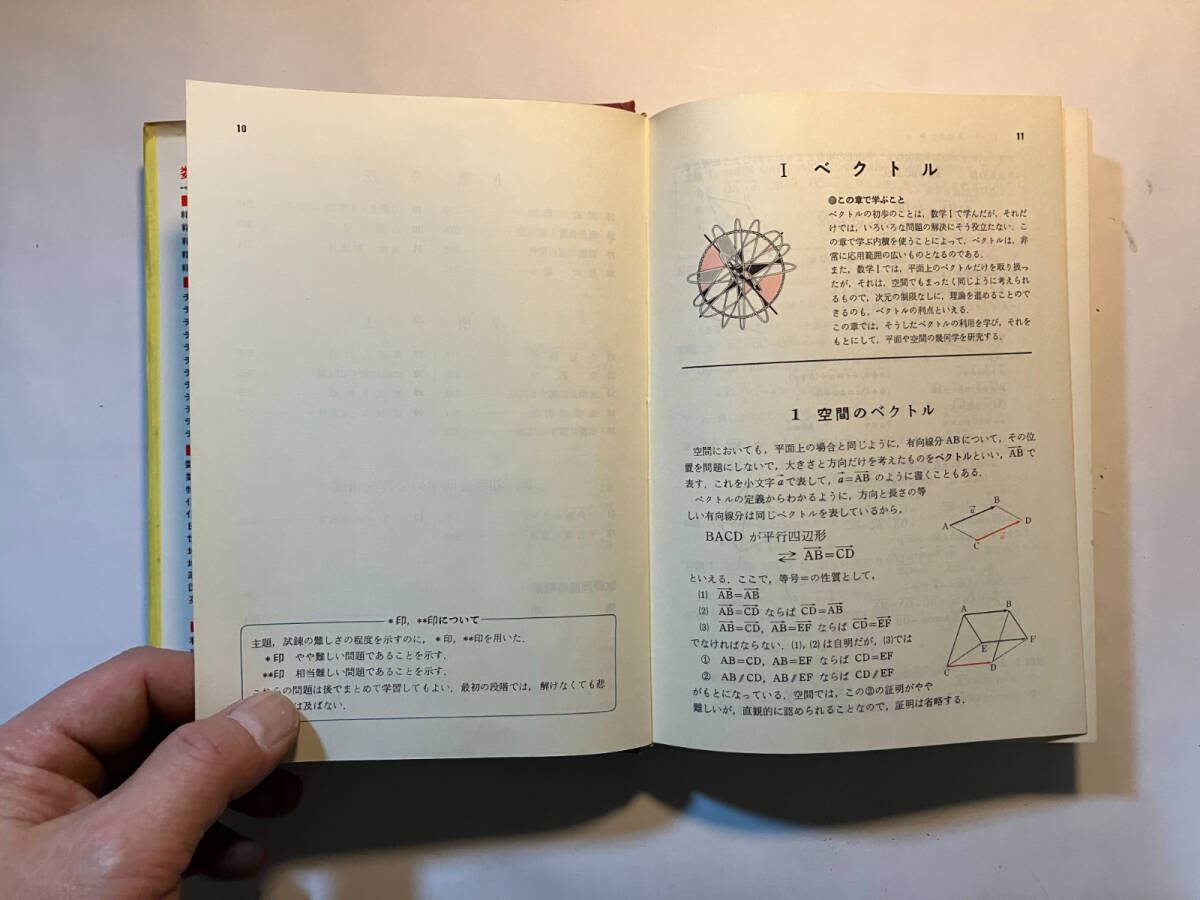 10
*印,**印について
主題,試錬の難しさの程度を示すのに,*印,**印を用いた.
*印 やや難しい問題であることを示す.
**印 相当難しい問題であることを示す.
の問題は後でまとめて学習してもよい.最初の段階では,解けなくても悲
は及ばない.
11
I ベクトル
●この章で学ぶこと
ベクトルの初歩のことは,数学Iで学んだが,それだ
けでは,いろいろな問題の解決にそう役立たない.こ
の章で学ぶ内積を使うことによって,ベクトルは,非
常に応用範囲の広いものとなるのである.
また,数学Iでは,平面上のベクトルだけを取り扱っ
たが,それは,空間でもまったく同じように考えられ
るもので,次元の制限なしに,理論を進めることので
きるのも,ベクトルの利点といえる.
この章では,そうしたベクトルの利用を学び,それを
もとにして,平面や空間の幾何学を研究する.
1 空間のベクトル
空間においても,平面上の場合と同じように,有向線分ABについて,その位
置を問題にしないで,大きさと方向だけを考えたものをベクトルといい,$\overrightarrow{AB}$で
表す.これを小文字$\vec{a}$で表して,$\vec{a}=\overrightarrow{AB}$のように書くこともある.
ベクトルの定義からわかるように,方向と長さの等
しい有向線分は同じベクトルを表しているから,
BACD が平行四辺形
⇄ $\overrightarrow{AB}=\overrightarrow{CD}$
といえる.ここで,等号=の性質として,
(1) $\overrightarrow{AB}=\overrightarrow{AB}$
(2) $\overrightarrow{AB}=\overrightarrow{CD}$ ならば $\overrightarrow{CD}=\overrightarrow{AB}$
(3) $\overrightarrow{AB}=\overrightarrow{CD}$, $\overrightarrow{AB}=\overrightarrow{EF}$ ならば $\overrightarrow{CD}=\overrightarrow{EF}$
でなければならない.(1),(2)は自明だが,(3)では
① AB=CD, AB=EF ならば CD=EF
② AB∥CD, AB∥EF ならば CD∥EF
がもとになっている.空間では,この②の証明がやや
難しいが,直観的に認められることなので,証明は省略する.
B
$\vec{a}$
A
D
C
$\vec{a}$
A
B
E
F
C
D
数